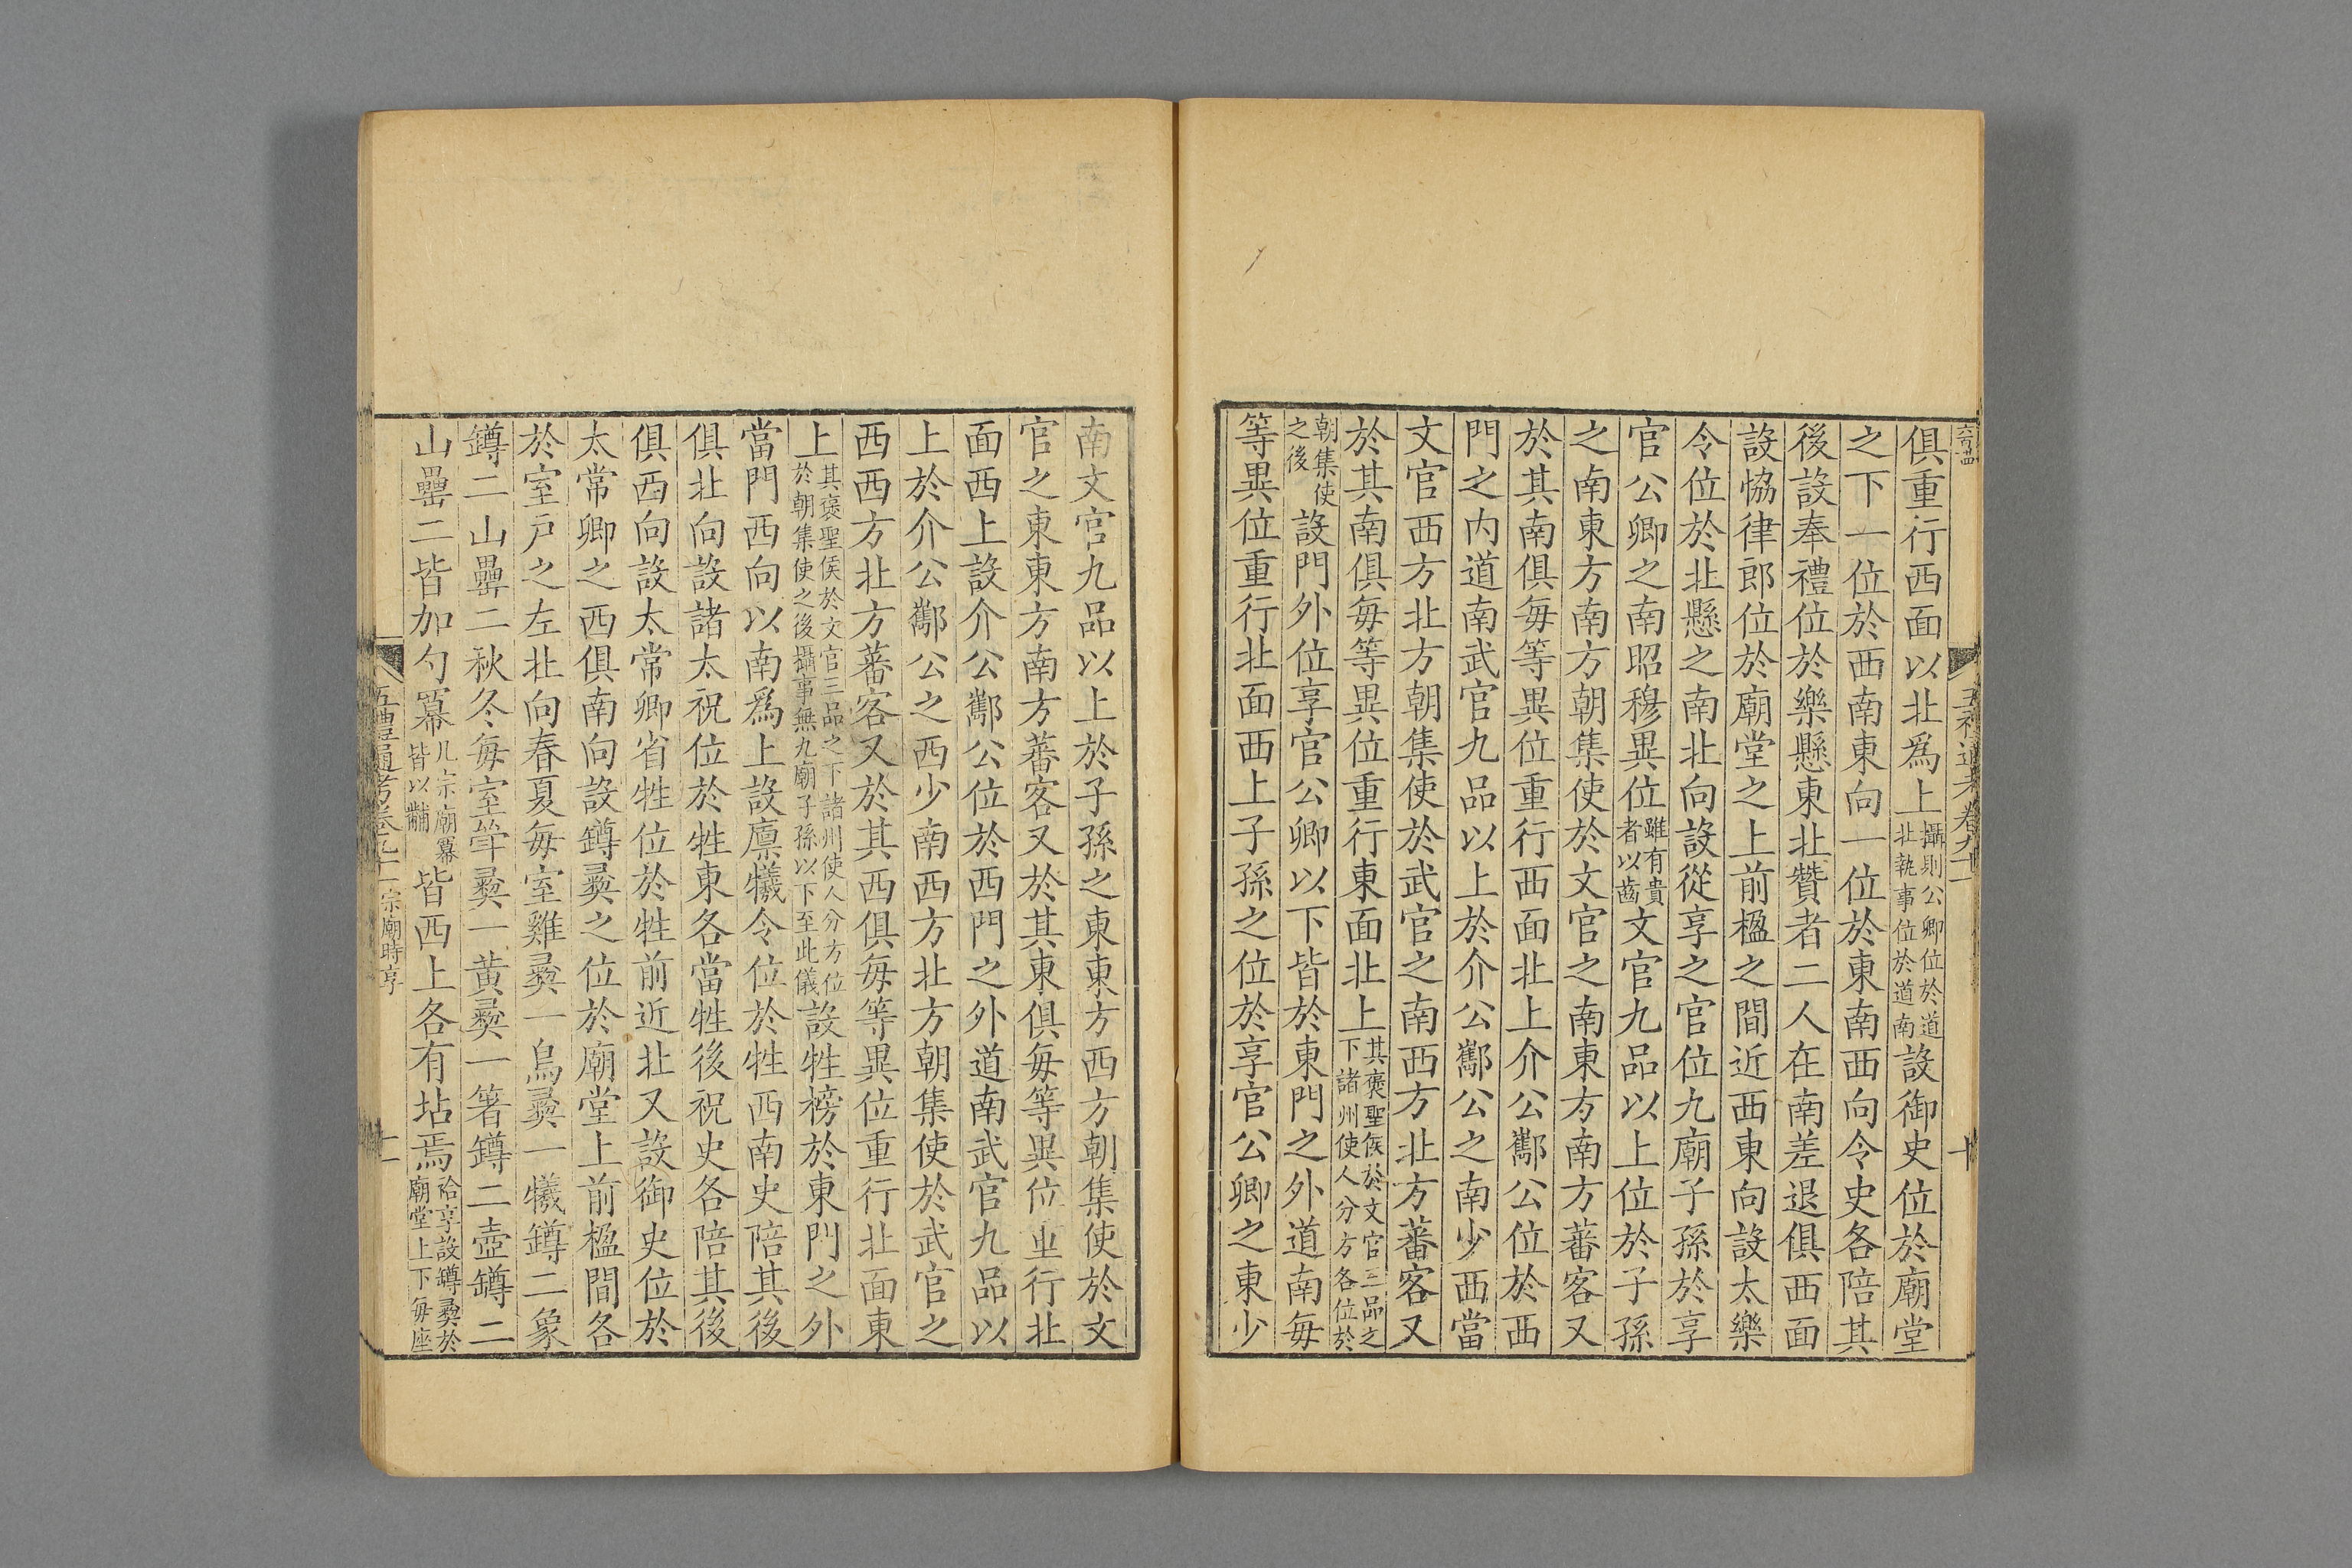 俱重行西面以北爲上攝則公卿位於道北執事位於道南設御史位於廟堂
之下一位於西南東向一位於東南西向令史各陪其
後設奉禮位於樂懸東北贊者二人在南差退俱西面
設協律郎位於廟堂之上前楹之間近西東向設太樂
令位於北懸之南北向設從享之官位九廟子孫於享
官公卿之南昭穆異位雖有貴者以齒文官九品以上位於子孫
之南東方南方朝集使於文官之南東方南方蕃客又
於其南俱每等異位重行西面北上介公酅公位於西
門之内道南武官九品以上於介公酅公之南少西當
文官西方北方朝集使於武官之南西方北方蕃客又
於其南俱每等異位重行東面北上其褒聖侯於文官三品之下諸州使人分方各位於
朝集使之後設門外位享官公卿以下皆於東門之外道南每
等異位重行北面西上子孫之位於享官公卿之東少
南文官九品以上於子孫之東東方西方朝集使於文
官之東東方南方蕃客又於其東俱每等異位重行北
面西上設介公酅公位於西門之外道南武官九品以
上於介公酅公之西少南西方北方朝集使於武官之
西西方北方蕃客又於其西俱每等異位重行北面東
上其褒聖侯於文官三品之下諸州使人分方位於朝集使之後攝事無九廟子孫以下至此儀設牲榜於東門之外
當門西向以南爲上設廩犧令位於牲西南史陪其後
俱北向設諸太祝位於牲東各當牲後祝史各陪其後
俱西向設太常卿省牲位於牲前近北又設御史位於
太常卿之西俱南向設罇彛之位於廟堂上前楹間各
於室戸之左北向春夏每室雞彛一鳥彛一犧罇二象
罇二山罍二秋冬每室斝彛一黄彛一箸罇二壺罇二
山罍二皆加勺冪凡宗廟冪皆以黼皆西上各有坫焉祫享設罇彛於廟堂上下每座
五禮通考卷九十一宗廟時享
十一